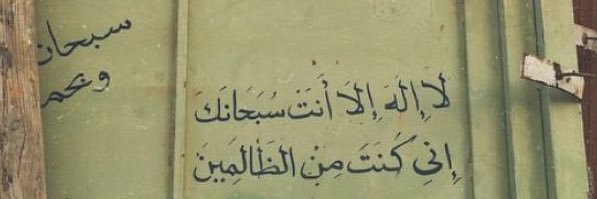 سبحان
وبحم
لَا إِلَهَ إِلَّا أَنْتَ سُبْحَانَكَ
إِنِّي كُنْتَ مِنْ الظَّالِمِينَ